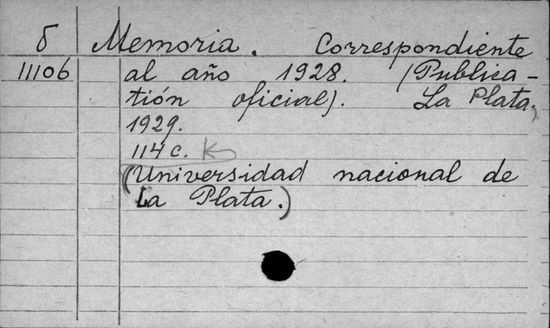 б Memoria. Correspondiente
11106 al año 1928. (Publica-
tión oficial). La Plata,
1929.
114 c. К
(Universidad nacional de
La Plata.)